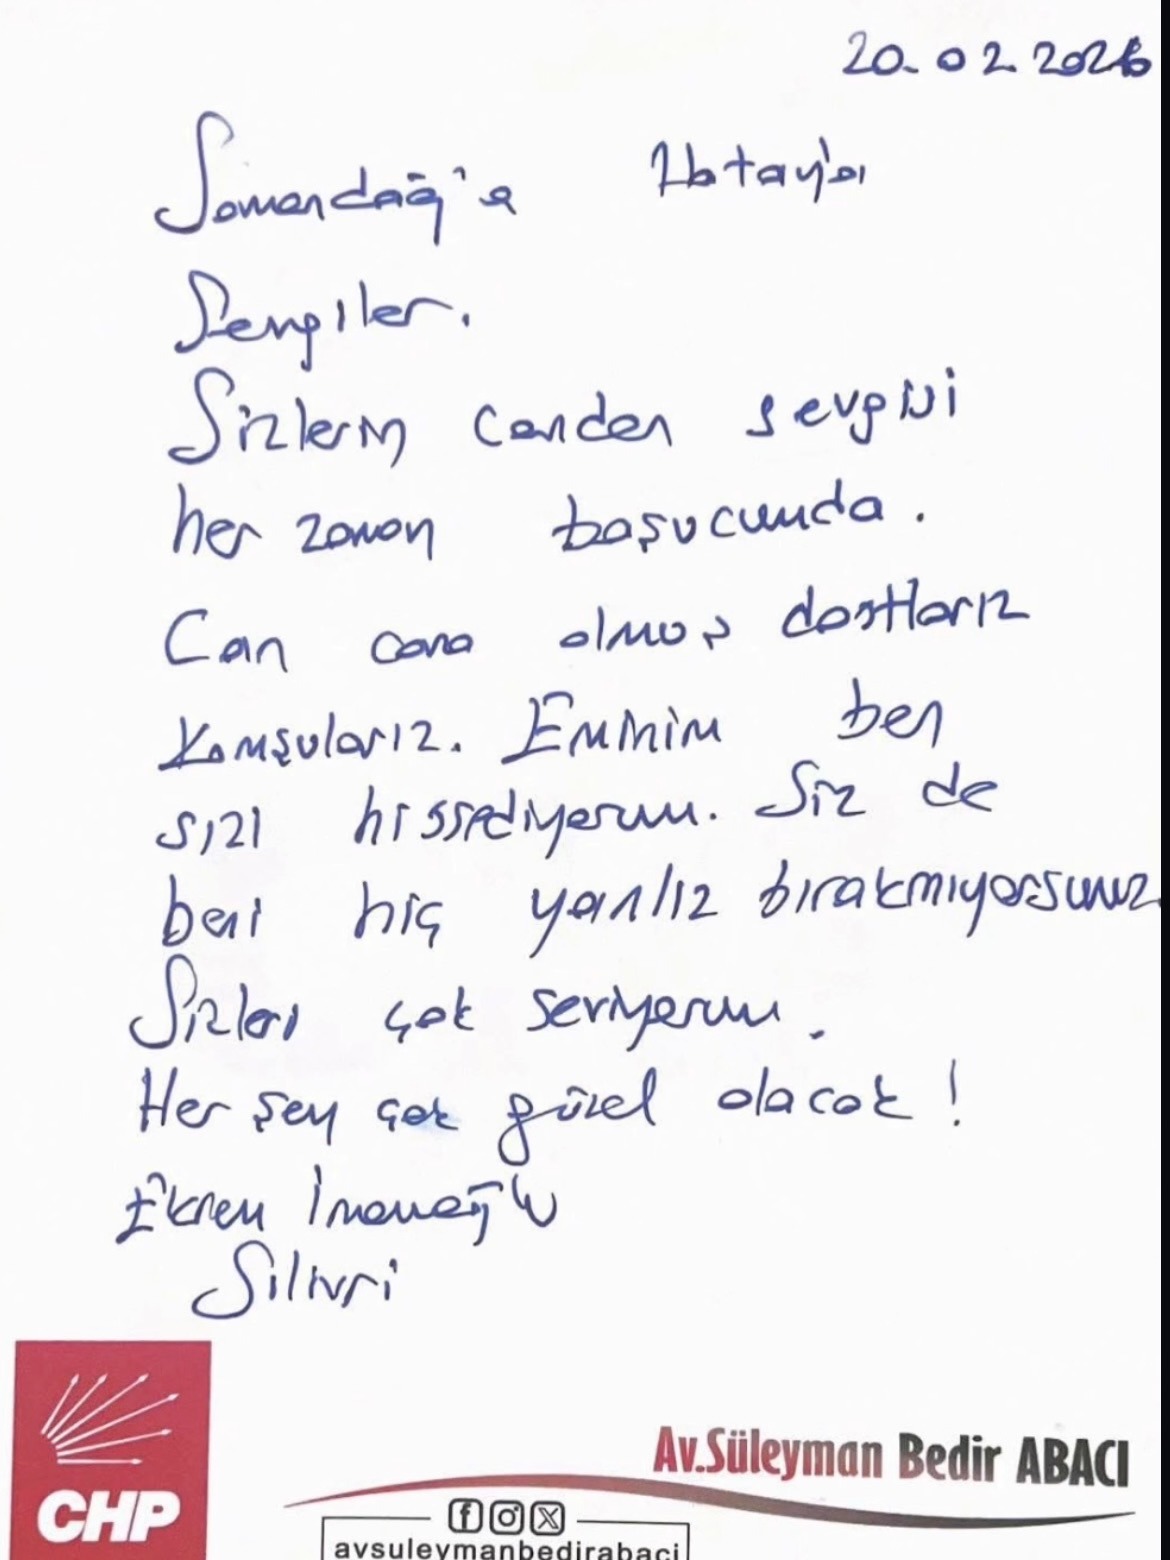 20.02.2026
Samandağ'a Hatay'a
Sevgiler.
Sizlerin candan sevgisi
her zaman başucumda.
Can cana olmuş dostlarız
Komşularız. Eminim ben
sizi hissediyorum. Siz de
beni hiç yanlız bırakmıyorsunuz
Sizleri çok seviyorum.
Her şey çok güzel olacak!
Ekrem İmamoğlu
Silivri
CHP
Av.Süleyman Bedir ABACI
avsuleymanbedirabaci